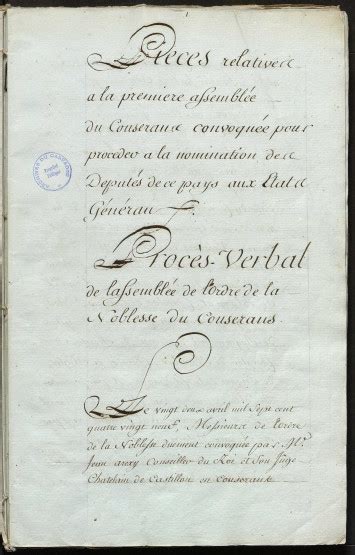 Pieces relatives
a la premiere assemblée
du Couserans convoquée pour
proceder a la nomination des
Deputés de ce pays aux Etats
Généraux
Procès-Verbal
de l'assemblée de l'ordre de la
Noblesse du Couserans
Le vingt deux avril mil sept cent
quatre vingt neuf, Messieurs de l'ordre
de la Noblesse duement convoquée par Mr.
Jean arexy Conseiller du Roi et Son Juge
Chatelain de Castillon en couserans